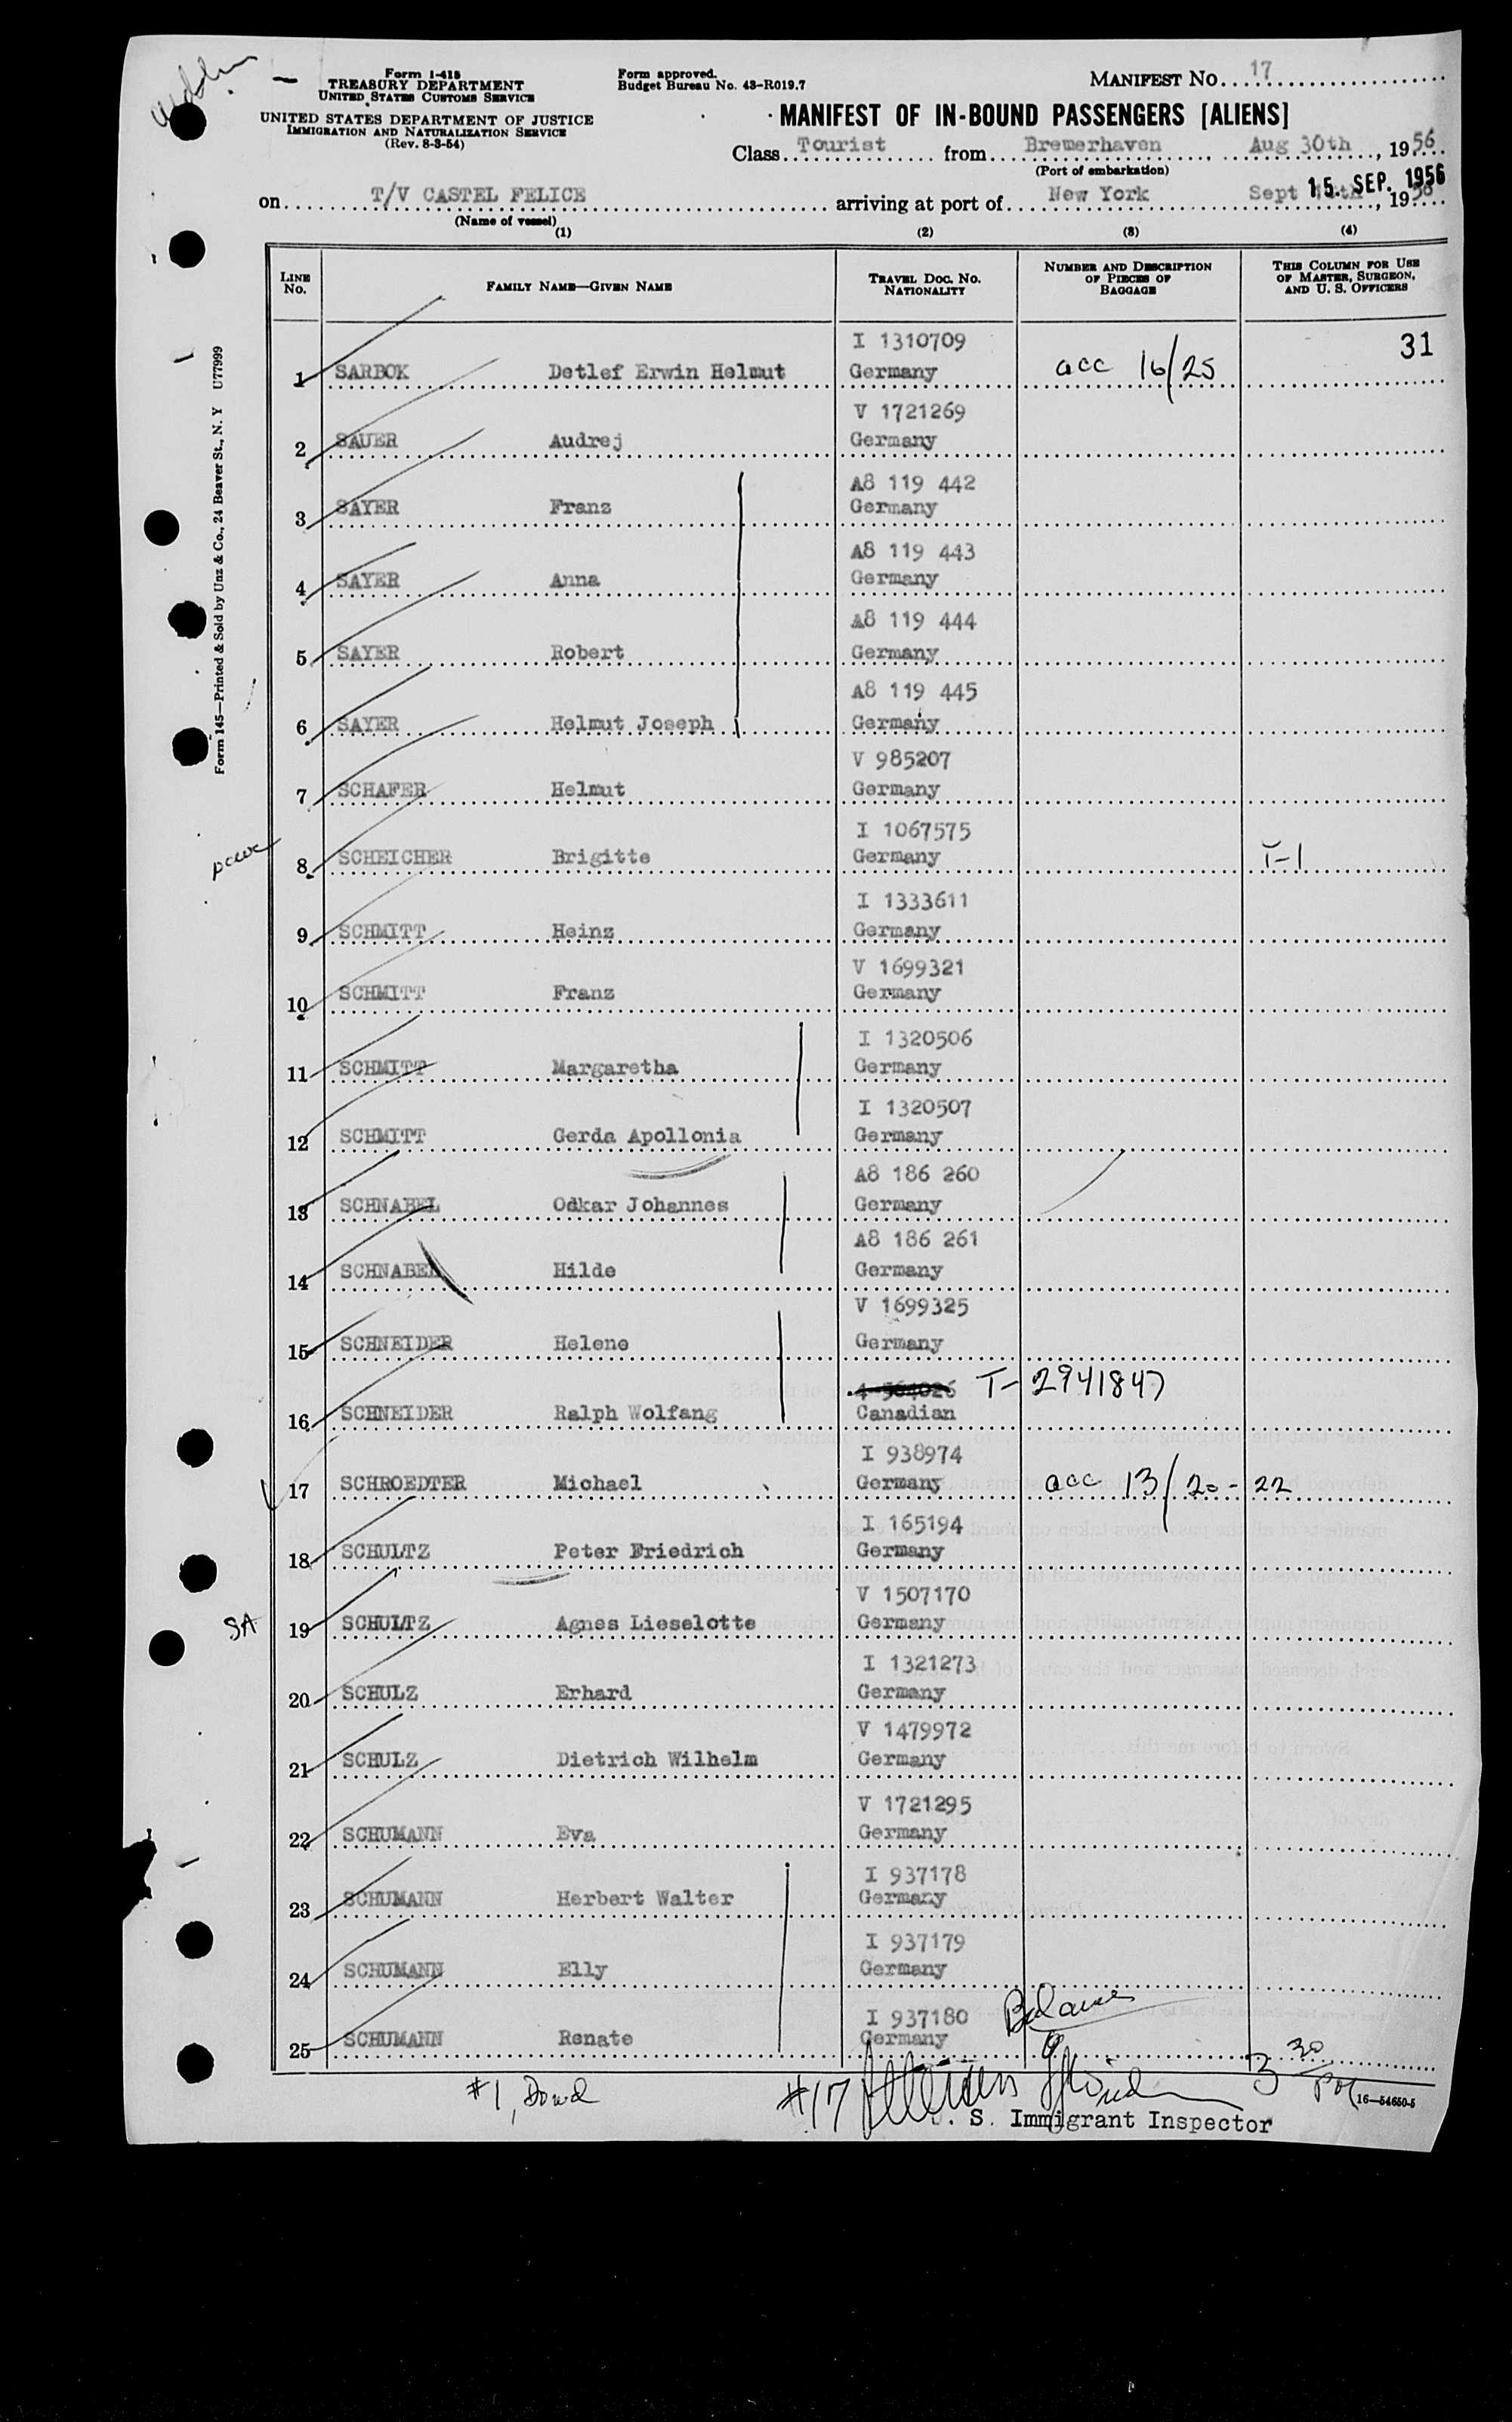 Form I-418
TREASURY DEPARTMENT
UNITED STATES CUSTOMS SERVICE
UNITED STATES DEPARTMENT OF JUSTICE
IMMIGRATION AND NATURALIZATION SERVICE
(Rev. 8-3-54)
Form approved.
Budget Bureau No. 43-R019.7
MANIFEST NO. 17
MANIFEST OF IN-BOUND PASSENGERS [ALIENS]
Class Tourist from Bremerhaven, Aug 30th, 1956
(Port of embarkation)
on T/V CASTEL FELICE arriving at port of New York Sept 15. SEP. 1956, 19
(Name of vessel)
(1) (2) (3) (4)
LINE No. FAMILY NAME—GIVEN NAME TRAVEL DOC. NO. NATIONALITY NUMBER AND DESCRIPTION OF PIECES OF BAGGAGE THIS COLUMN FOR USE OF MASTER, SURGEON, AND U. S. OFFICERS
31
I 1310709
1 SARBOK Detlef Erwin Helmut Germany acc 16/25
V 1721269
2 SAUER Audrej Germany
A8 119 442
3 SAYER Franz Germany
A8 119 443
4 SAYER Anna Germany
A8 119 444
5 SAYER Robert Germany
A8 119 445
6 SAYER Helmut Joseph Germany
V 985207
7 SCHAFER Helmut Germany
I 1067575
8 SCHEICHER Brigitte Germany T-1
I 1333611
9 SCHMITT Heinz Germany
V 1699321
10 SCHMITT Franz Germany
I 1320506
11 SCHMITT Margaretha Germany
I 1320507
12 SCHMITT Gerda Apollonia Germany
A8 186 260
13 SCHNABEL Odkar Johannes Germany
A8 186 261
14 SCHNABEL Hilde Germany
V 1699325
15 SCHNEIDER Helene Germany
T-2941847
16 SCHNEIDER Ralph Wolfang Canadian
I 938974
17 SCHROEDTER Michael Germany acc 13/20-22
I 165194
18 SCHULTZ Peter Friedrich Germany
V 1507170
SA 19 SCHULTZ Agnes Lieselotte Germany
I 1321273
20 SCHULZ Erhard Germany
V 1479972
21 SCHULZ Dietrich Wilhelm Germany
V 1721295
22 SCHUMANN Eva Germany
I 937178
23 SCHUMANN Herbert Walter Germany
I 937179
24 SCHUMANN Elly Germany
I 937180 Balance
25 SCHUMANN Renate Germany
#1, Dowd #17 3 30
. S. Immigrant Inspector
16—54650-5
Form 145—Printed & Sold by Unz & Co., 24 Beaver St., N. Y U77999